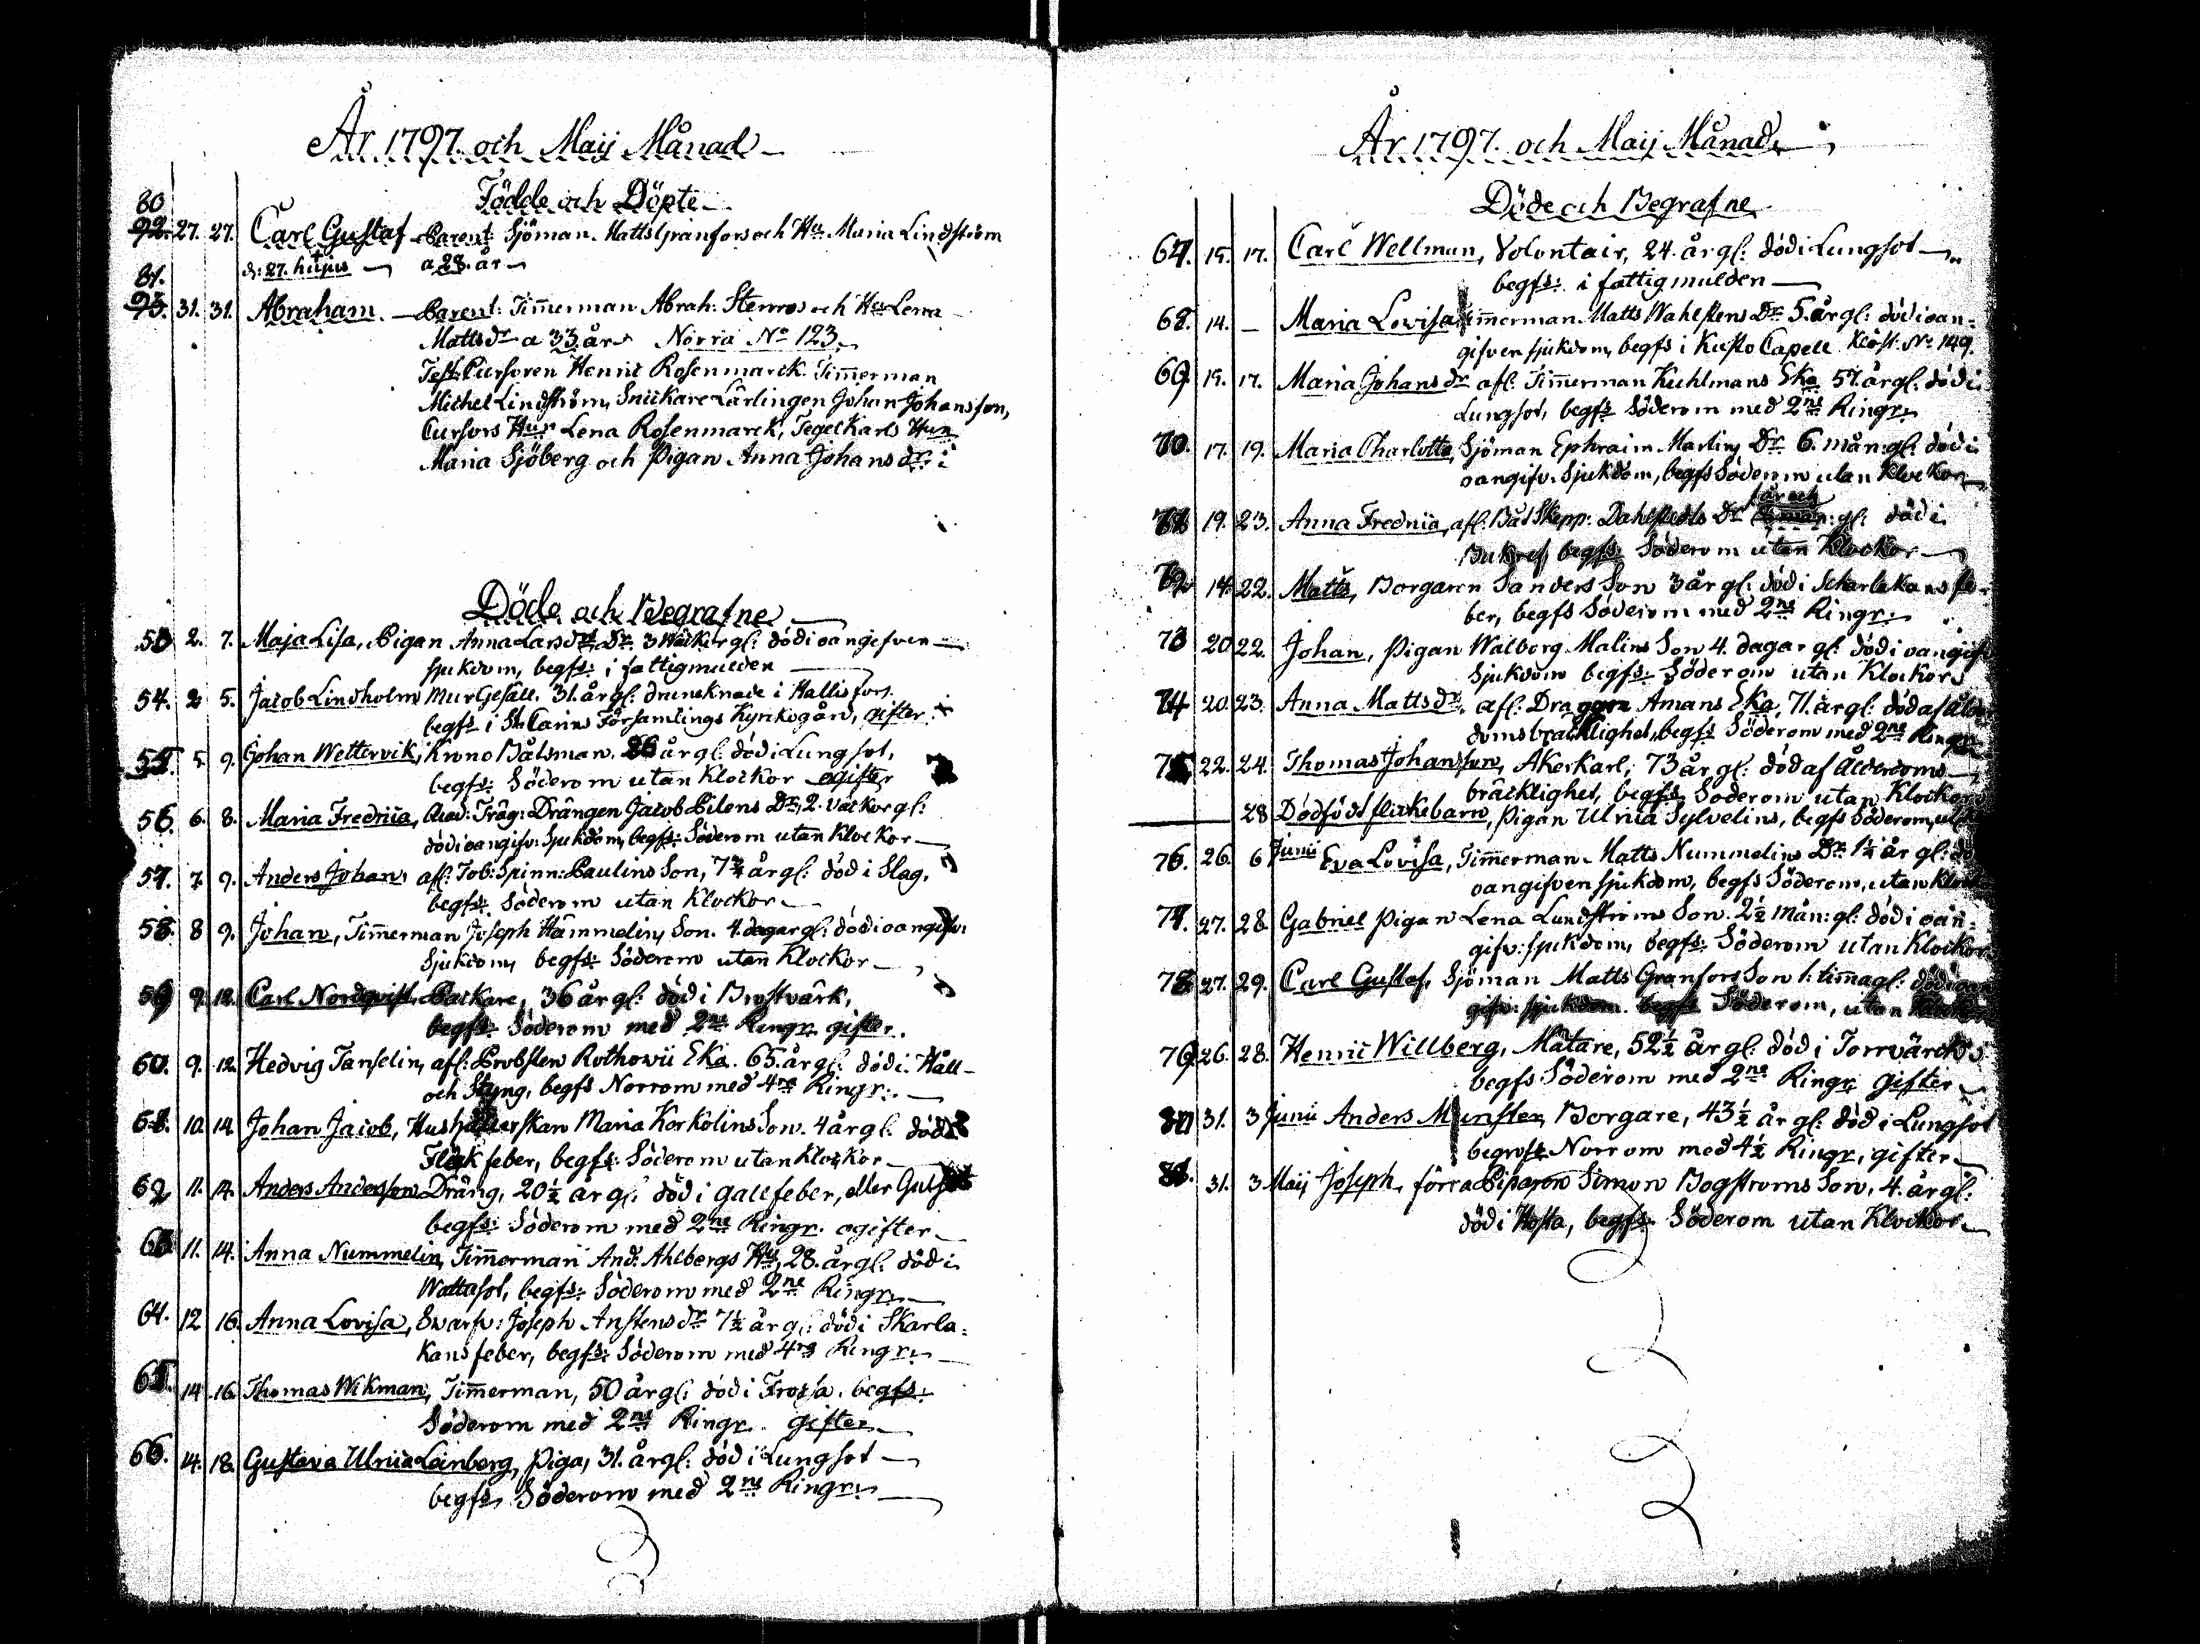 År 1797. och Maij Månad
Födde och Döpte
80
92. 27. 27. Carl Gustaf Parent: Sjöman Matts Granfors och Hu Maria Lindström
d: 27. hujus a 28. år
81.
93. 31. 31. Abraham. Parent: Timmerman Abrah: Stenros och Hu Lena
Mattsdr a 33. år Norra No 123.
Test: Cursoren Henric Rosenmarck. Timmerman
Michel Lindström, Snickare Lärlingen Johan Johansson,
Cursors Hu Lena Rosenmarck, Tegelkarls Hun
Maria Sjöberg och Pigan Anna Johansdr:
Döde och Begrafne
53 2. 7. Maja Lisa, Pigan Anna Larsdrs Dr. 3 Wäckor gl: död i oangifven
sjukdom, begfs: i fattigmulden
54. 2 5. Jacob Lindholm MurGesäll. 31. år gl: drunknade i Hallis fors.
begfs i St: Carins Församlings Kyrkogård, gifter.
55. 5. 9. Johan Wettervik, Krono Båtsman. 26 år gl: död i Lungsot,
begfs: Söderom utan Klockor ogifter
56. 6. 8. Maria Fredrica, Acad: Träg: Drängen Jacob Pilens Dr, 2. väckor gl:
död i oangifv: Sjukdom, begfs: Söderom utan Klockor
57. 7. 9. Anders Johan, afl: Tob: Spinn: Paulins Son, 7 3/4 år gl: död i Slag,
begfs: Söderom utan Klockor
58. 8 9. Johan, Timmerman Joseph Hämmelins Son. 4. dagar gl: död i oangifv:
Sjukdom, begfs: Söderom utan Klockor
59 9. 12. Carl Nordqvist, Packare, 36 år gl: död i Bröstvärk,
begfs: Söderom med 2ne Ringr. gifter.
60. 9. 12. Hedvig Tanselin, afl: Probsten Rothowii Eka. 65. år gl: död i Håll
och Styng, begfs Norrom med 4ra Ringr:
61. 10. 14. Johan Jacob, Hushållerskan Maria Korkolins Son. 4 år gl: död i
Fläckfeber, begfs: Söderom utan Klockor
62 11. 14. Anders Andersson Dräng, 20 1/2 år gl: död i gallfeber, eller Gulsot
begfs: Söderom med 2ne Ringr. ogifter
63 11. 14. Anna Nummelin, Timmerman And: Ahlbergs Hu, 28. år gl: död i
Wattusot, begfs: Söderom med 2ne Ringr:
64. 12 16. Anna Lovisa, Swarfv: Joseph Anstens dr 7 1/2 år gl: död i Skarla-
kansfeber, begfs: Söderom med 4ra Ringr:
65. 14 16. Thomas Wikman, Timmerman, 50 år gl: död i Frossa. begfs:
Söderom med 2ne Ringr. gifter
66. 14. 18. Gustava Ulrica Leinberg, Piga, 31. år gl: död i Lungsot
begfs. Söderom med 2ne Ringr:
År 1797. och Maij Månad
Döde och Begrafne
67. 15. 17. Carl Wellman, Volontair, 24. år gl: död i Lungsot
begfs: i fattigmulden
68. 14. — Maria Lovisa, Timmerman Matts Wahlstens Dr. 5. år gl: död i oan-
gifven sjukdom, begfs i Kusto Capell Klöst. No 149.
69 15. 17. Maria Johansdr afl: Timmerman Kuhlmans Eka 57. år gl: död i
Lungsot, begfs Söderom med 2ne Ringr:
70. 17. 19. Maria Charlotta, Sjöman Ephraim Martins Dr. 6. mån: gl: död i
oangifv: Sjukdom, begfs Söderom utan Klockor
71 19. 23. Anna Fredrica, afl: Båt Skepp: Dahlstedts Dr gl: död i
Bukref begfs: Söderom utan Klockor
72 14. 22. Matts, Borgaren Sanders Son 3 år gl: död i Scharlakansfe-
ber, begfs Söderom med 2ne Ringr:
73 20 22. Johan, Pigan Walborg Malins Son 4. dagar gl: död i oangifv
Sjukdom begfs: Söderom utan Klockor
74 20. 23. Anna Mattsdr. afl: Dragon Amans Eka, 71. år gl: död af Ålder
domsbräcklighet, begfs Söderom med 2ne Ringr
75 22. 24. Thomas Johansson, Åkerkarl, 73 år gl: död af Ålderdoms
bräcklighet, begfs: Söderom utan Klockor
28 Dödfödt flickebarn, Pigan Ulrica Sylvelins, begfs Söderom,
76. 26. 6 Junii Eva Lovisa, Timmerman Matts Nummelins Dr. 1 1/4 år gl: dö
oangifven sjukdom, begfs Söderom, utan Klock
77. 27. 28. Gabriel Pigan Lena Lundströms Son. 2 1/2 mån: gl: död i oan-
gifv: sjukdom, begfs: Söderom utan Klockor
78. 27. 29. Carl Gustaf, Sjöman Matts Granfors Son 1: timma gl: död i oan
gifv: sjukdom. begfs Söderom, utan Klockor
79 26. 28. Henric Willberg, Mätare, 52 1/2 år gl: död i Torrvärck
begfs Söderom med 2ne Ringr, gifter
80 31. 3 Junii Anders Munster, Borgare, 43 1/2 år gl: död i Lungsot
begrofs Norrom med 4 1/2 Ringr, gifter
81. 31. 3. Maij Joseph, förra Simon Bogströms Son, 4. år gl:
död i Hosta, begfs: Söderom utan Klockor